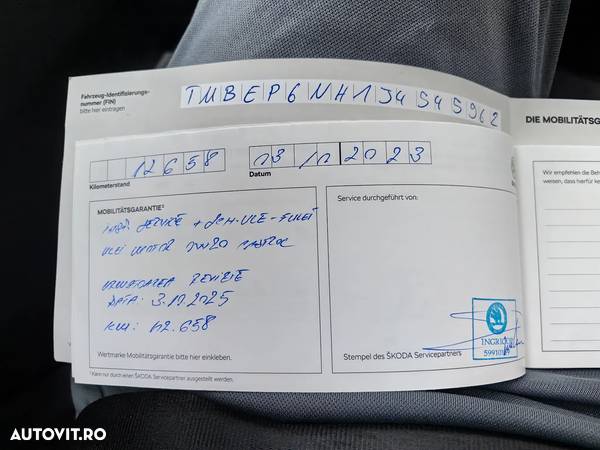 Fahrzeug-Identifizierungs-
nummer (FIN)
bitte hier eintragen
TMBEP6NH1J4545962
DIE MOBILITÄTSG
12658
Kilometerstand
13 11 2023
Datum
Wir empfehlen die Beh
weisen, dass hierfür ke
MOBILITÄTSGARANTIE¹
SERVICE + SCH. ULEI + FILTRU
ULEI MOTOR CASTROL
URMATOAREA REVIZIE
DATA: 3.10.2025
KM: 42.658
Wertmarke Mobilitätsgarantie bitte hier einkleben.
Service durchgeführt von:
Stempel des ŠKODA Servicepartners
¹ Kann nur durch einen ŠKODA Servicepartner ausgestellt werden.
AUTOVIT.RO